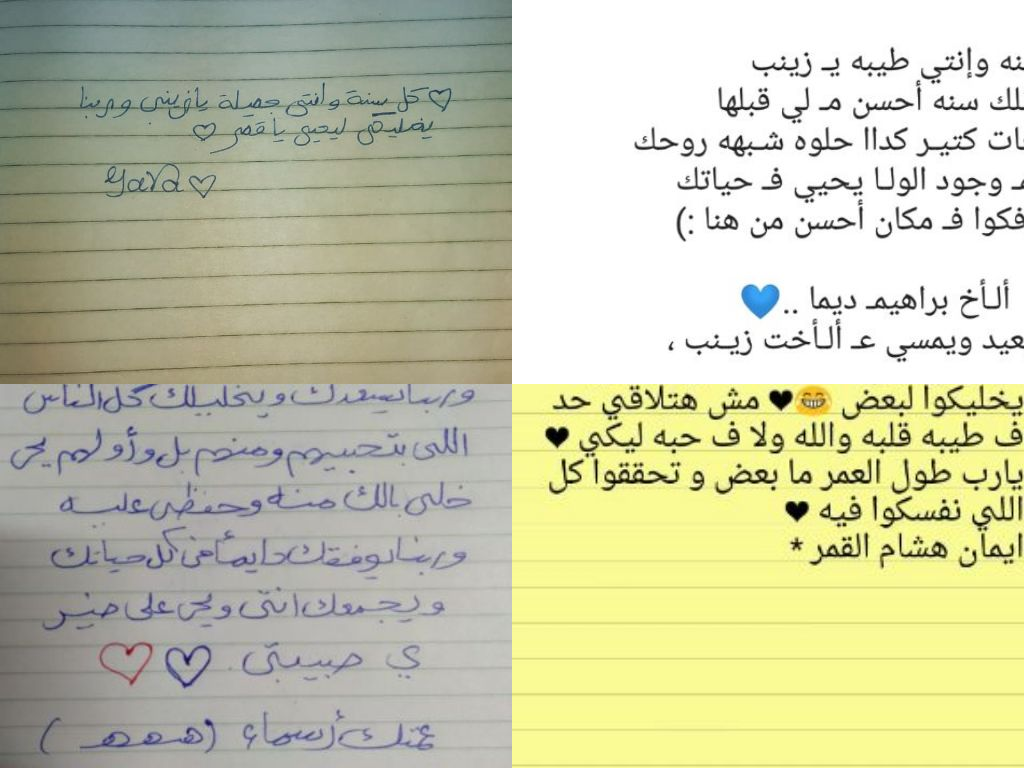 ♡ كل سنة وانتي جميلة يا زينبي وربنا
يخليكي ليحيي يا قمر ♡
Yara ♡
نه وإنتي طيبه يـ زينب
لك سنه أحسن مـ لي قبلها
ات كتيـر كداا حلوه شبهه روحك
ـ وجود الولـا يحيي فـ حياتك
فكوا فـ مكان أحسن من هنا :)
ألـأخ براهيمـ ديما ..💙
عيد ويمسي عـ ألـأخت زيـنب ،
وربنا يسعدك ويخليلك كل الناس
اللى بتحبيهم ومنهم بل وأولهم يحى
خلى بالك منه وحفظى عليه
وربنا يوفقك دايماً فى كل حياتك
ويجمعك انتى ويحى على خير
ي حبيبتى. ♡ ♡
عمتك أسماء (هههه)
يخليكوا لبعض 😂♥ مش هتلاقي حد
ف طيبه قلبه والله ولا ف حبه ليكي ♥
يارب طول العمر ما بعض و تحققوا كل
اللي نفسكوا فيه ♥
ايمان هشام القمر *